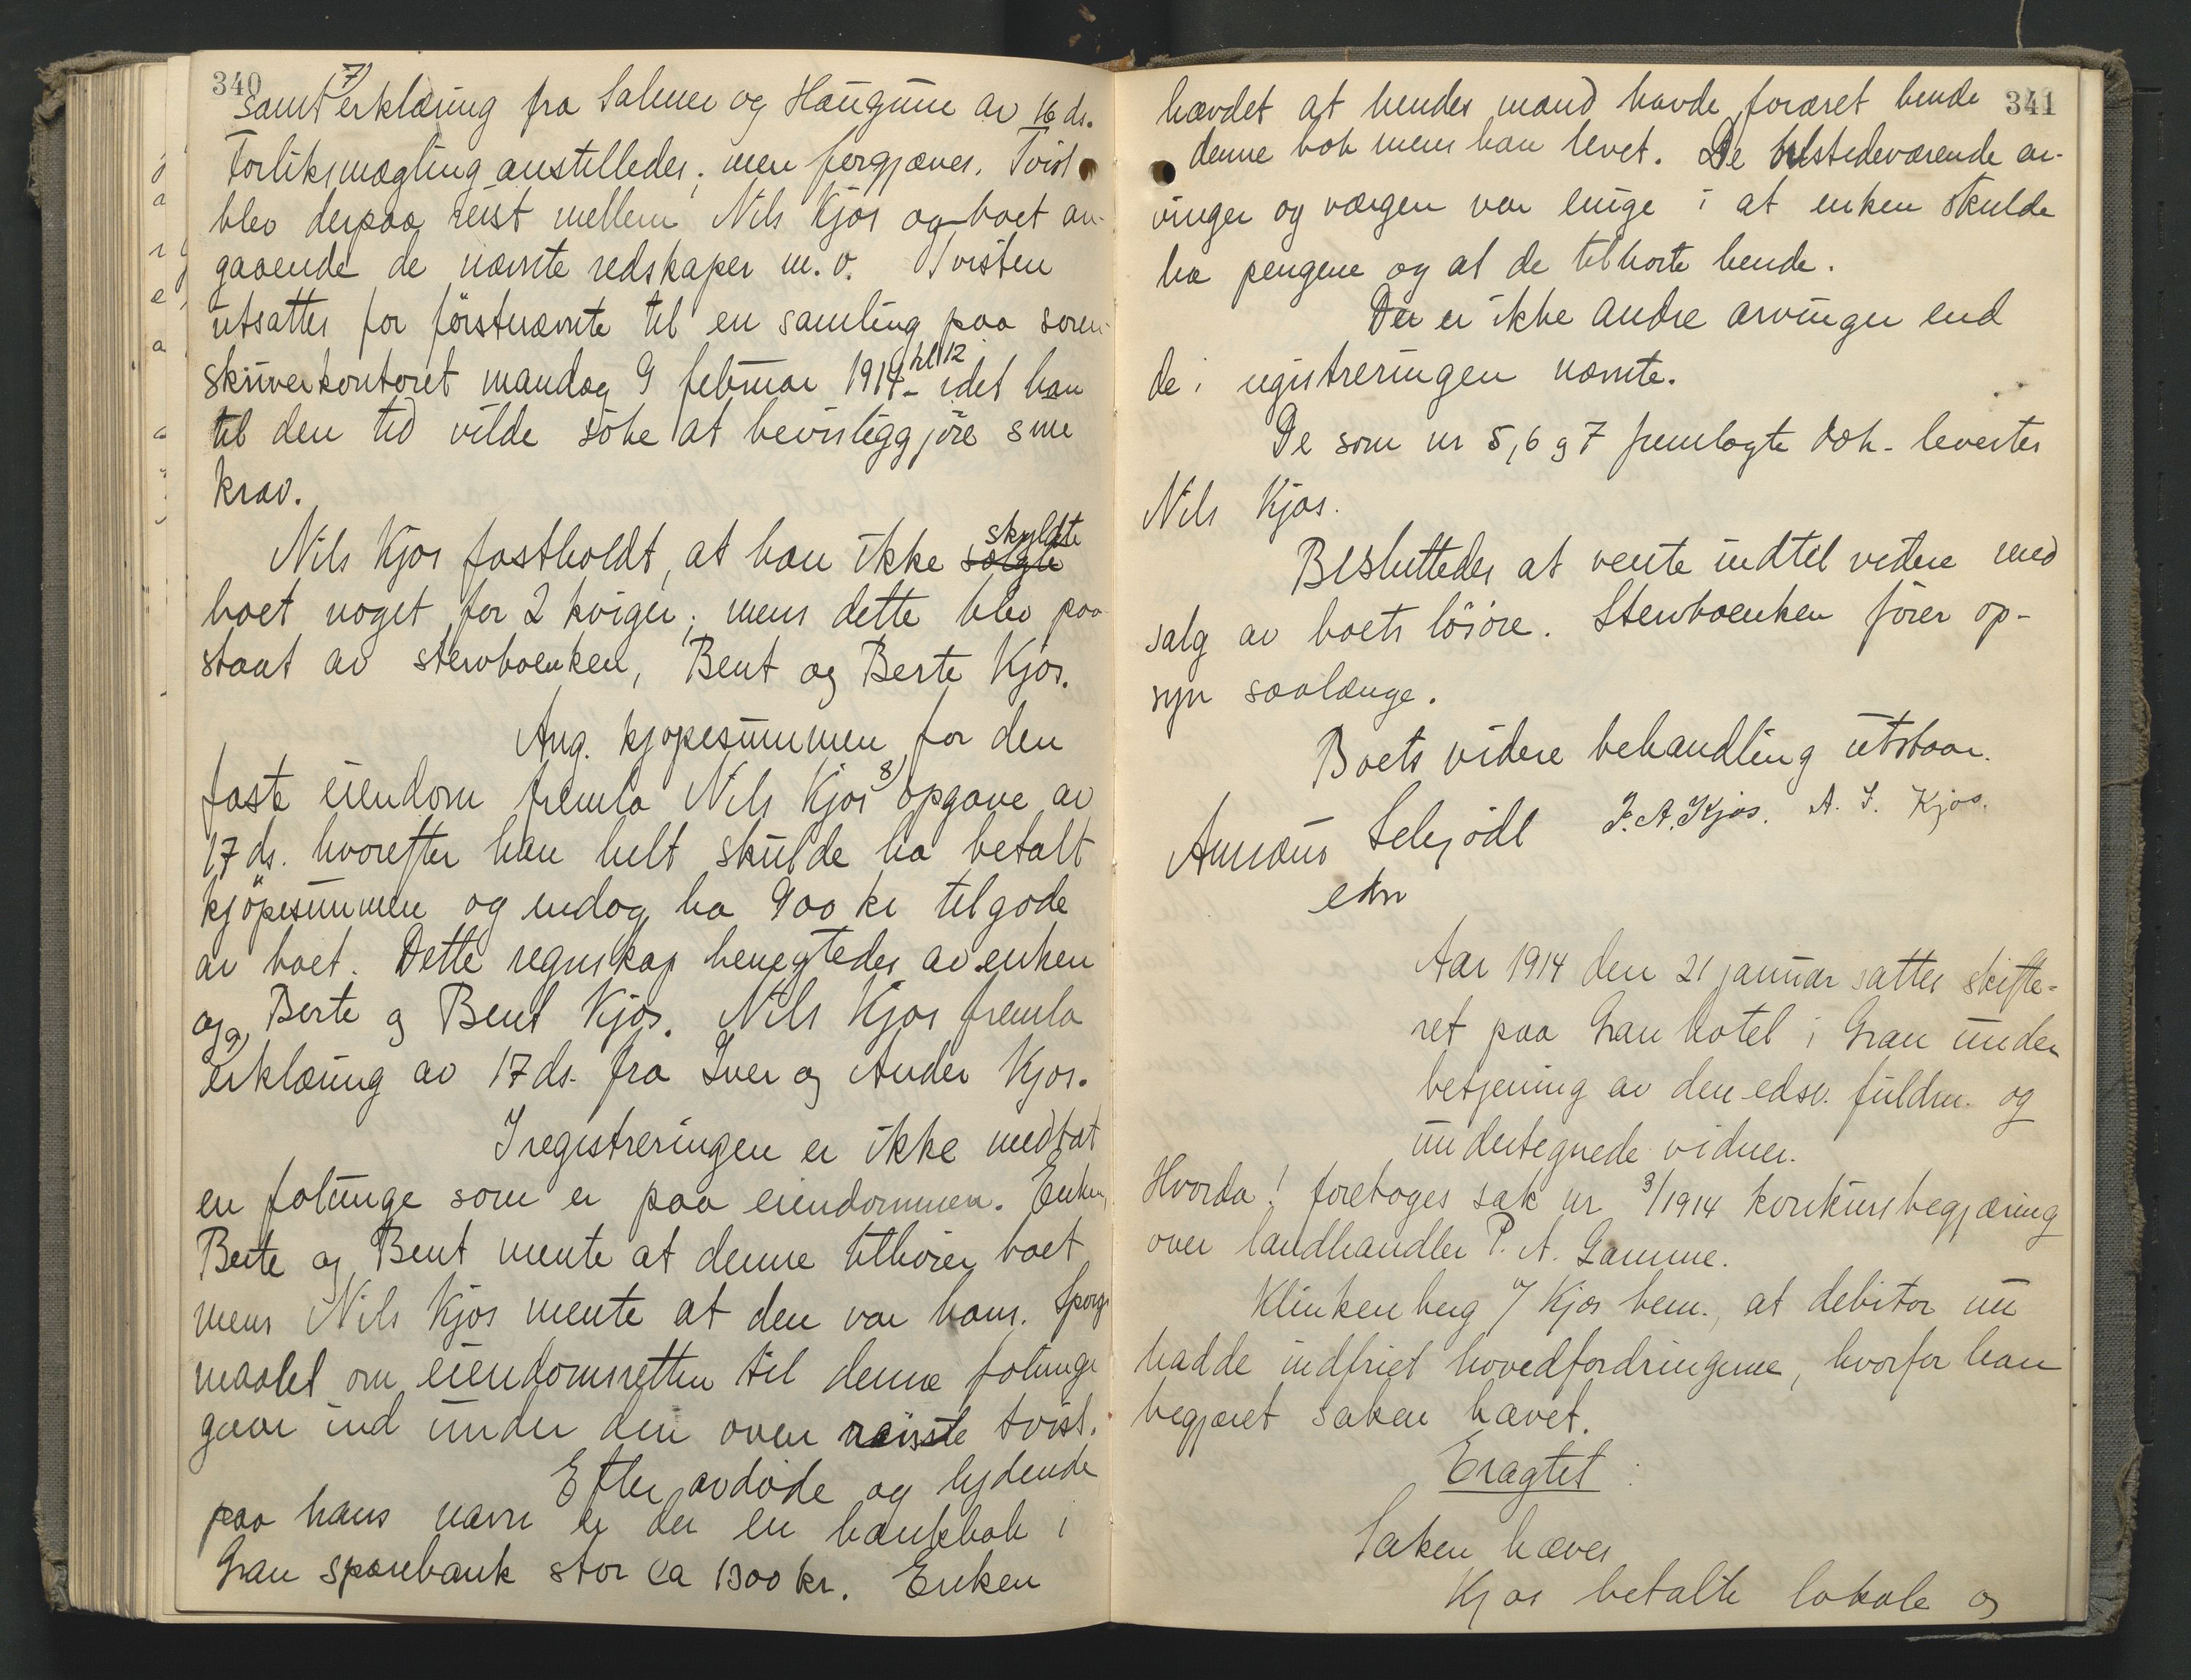 340
samt 7) erklæring fra Salmer og Haugune av 16 ds.
Forliksmægling anstilledes; men forgjæves. Tvist
blev derpaa reist mellem Nils Kjos og boet an-
gaaende de nævnte redskaper m. v. Tvisten
utsattes for førstnævnte til en samling paa soren-
skriverkontoret mandag 9 februar 1914 kl 12 - idet han
til den tid vilde söke at bevisliggjöre sine
krav.
Nils Kjos fastholdt, at han ikke solgte skyldte
boet noget for 2 kviger; mens dette blev paa-
staat av stervboenken, Bent og Berte Kjos.
Ang. kjøpesummen for den
faste eiendom fremla Nils Kjos 8) opgave av
17 ds. hvorefter han helt skulde ha betalt
kjöpesummen og endog ha 900 kr tilgode
av boet. Dette regnskap benegtedes av enken
og Berte og Bent Kjos. Nils Kjos fremla
9) erklæring av 17 ds. fra Iver og Anders Kjos.
I registreringen er ikke medtat
en folunge som er paa eiendommen. Enken,
Berte og Bent mente at denne tilhører boet
mens Nils Kjos mente at den var hans. Spørgs
maalet om eiendomsretten til denne folunge
gaar ind under den oven reiste tvist.
Efter avdöde og lydende
paa hans navn er der en bankbok i
Gran sparebank stor ca 1300 kr. Enken
341
hævdet at hendes mand havde foræret hende
denne bok mens han levet. De tilstedeværende ar-
vinger og værgen var enige i at enken skulde
ha pengene og at de tilhørte hende.
Der er ikke andre arvinger end
de i registreringen nævnte.
De som nr 5, 6 g 7 fremlagte dok. levertes
Nils Kjos.
Besluttedes at vente indtil videre med
salg av boets lösöre. Stervboenken förer op-
syn saalænge.
Boets videre behandling utstaar.
Schjödt J. A. Kjos. A. J. Kjos.
Aar 1914 den 21 januar sattes skifte-
ret paa Gran hotel i Gran under
betjening av den edsv. fuldm. og
undertegnede vidner.
Hvorda! foretoges sak nr 3/1914 konkursbegjæring
over landhandler P. A. Gamme.
Klinkenberg v/ Kjos bem., at debitor nu
hadde indfriet hovedfordringerne, hvorfor han
begjæret saken hævet.
Eragtet:
Saken hæves
Kjos betalte lokale og